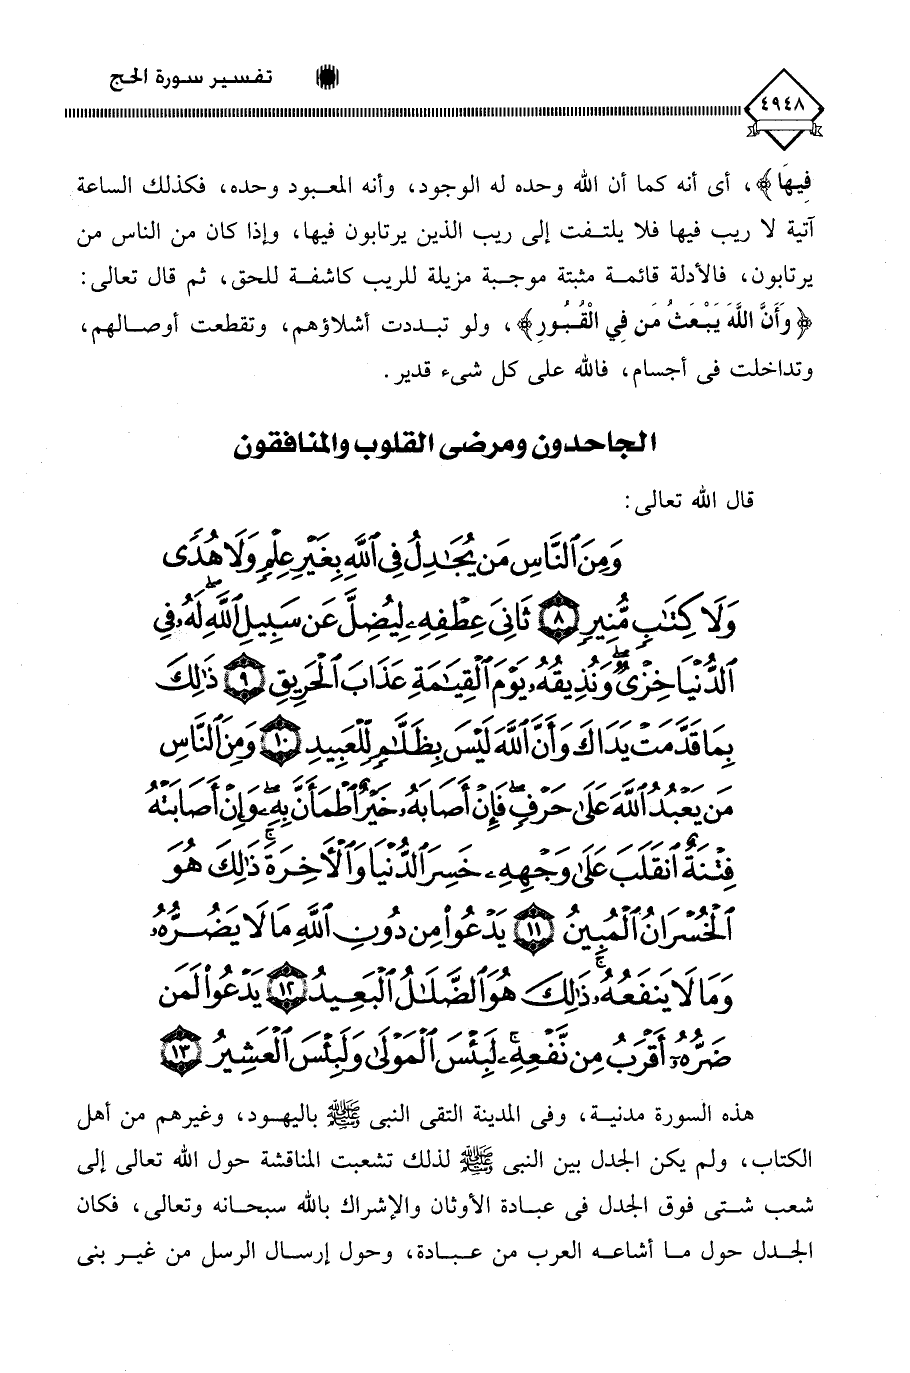 ٤٩٤٨
تفسير سورة الحج
فِيهَا﴾، أى أنه كما أن الله وحده له الوجود، وأنه المعبود وحده، فكذلك الساعة
آتية لا ريب فيها فلا يلتفت إلى ريب الذين يرتابون فيها، وإذا كان من الناس من
يرتابون، فالأدلة قائمة مثبتة موجبة مزيلة للريب كاشفة للحق، ثم قال تعالى:
﴿وَأَنَّ اللَّهَ يَبْعَثُ مَن فِي الْقُبُورِ﴾، ولو تبددت أشلاؤهم، وتقطعت أوصالهم،
وتداخلت فى أجسام، فالله على كل شىء قدير.
الجاحدون ومرضى القلوب والمنافقون
قال الله تعالى:
وَمِنَ ٱلنَّاسِ مَن يُجَٰدِلُ فِي ٱللَّهِ بِغَيۡرِ عِلۡمٖ وَلَا هُدٗى
وَلَا كِتَٰبٖ مُّنِيرٖ ٨ ثَانِيَ عِطۡفِهِۦ لِيُضِلَّ عَن سَبِيلِ ٱللَّهِۖ لَهُۥ فِي
ٱلدُّنۡيَا خِزۡيٞۖ وَنُذِيقُهُۥ يَوۡمَ ٱلۡقِيَٰمَةِ عَذَابَ ٱلۡحَرِيقِ ٩ ذَٰلِكَ
بِمَا قَدَّمَتۡ يَدَاكَ وَأَنَّ ٱللَّهَ لَيۡسَ بِظَلَّٰمٖ لِّلۡعَبِيدِ ١٠ وَمِنَ ٱلنَّاسِ
مَن يَعۡبُدُ ٱللَّهَ عَلَىٰ حَرۡفٖۖ فَإِنۡ أَصَابَهُۥ خَيۡرٌ ٱطۡمَأَنَّ بِهِۦۖ وَإِنۡ أَصَابَتۡهُ
فِتۡنَةٌ ٱنقَلَبَ عَلَىٰ وَجۡهِهِۦ خَسِرَ ٱلدُّنۡيَا وَٱلۡأٓخِرَةَۚ ذَٰلِكَ هُوَ
ٱلۡخُسۡرَانُ ٱلۡمُبِينُ ١١ يَدۡعُواْ مِن دُونِ ٱللَّهِ مَا لَا يَضُرُّهُۥ
وَمَا لَا يَنفَعُهُۥۚ ذَٰلِكَ هُوَ ٱلضَّلَٰلُ ٱلۡبَعِيدُ ١٢ يَدۡعُواْ لَمَن
ضَرُّهُۥٓ أَقۡرَبُ مِن نَّفۡعِهِۦۚ لَبِئۡسَ ٱلۡمَوۡلَىٰ وَلَبِئۡسَ ٱلۡعَشِيرُ ١٣
هذه السورة مدنية، وفى المدينة التقى النبى ﷺ باليهود، وغيرهم من أهل
الكتاب، ولم يكن الجدل بين النبى ﷺ لذلك تشعبت المناقشة حول الله تعالى إلى
شعب شتى فوق الجدل فى عبادة الأوثان والإشراك بالله سبحانه وتعالى، فكان
الجدل حول ما أشاعه العرب من عبادة، وحول إرسال الرسل من غير بنى